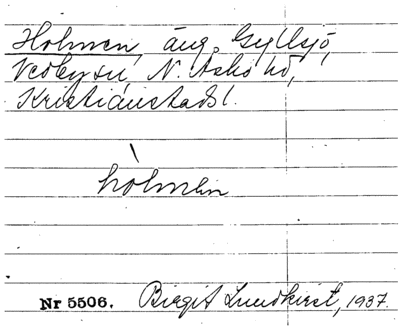 Holmen, äng, Gyllsjö,
Vedby sn, N. Åsbo hd,
Kristianstads l.
hòlmen
Nr 5506. Birgit Lundkvist, 1937.